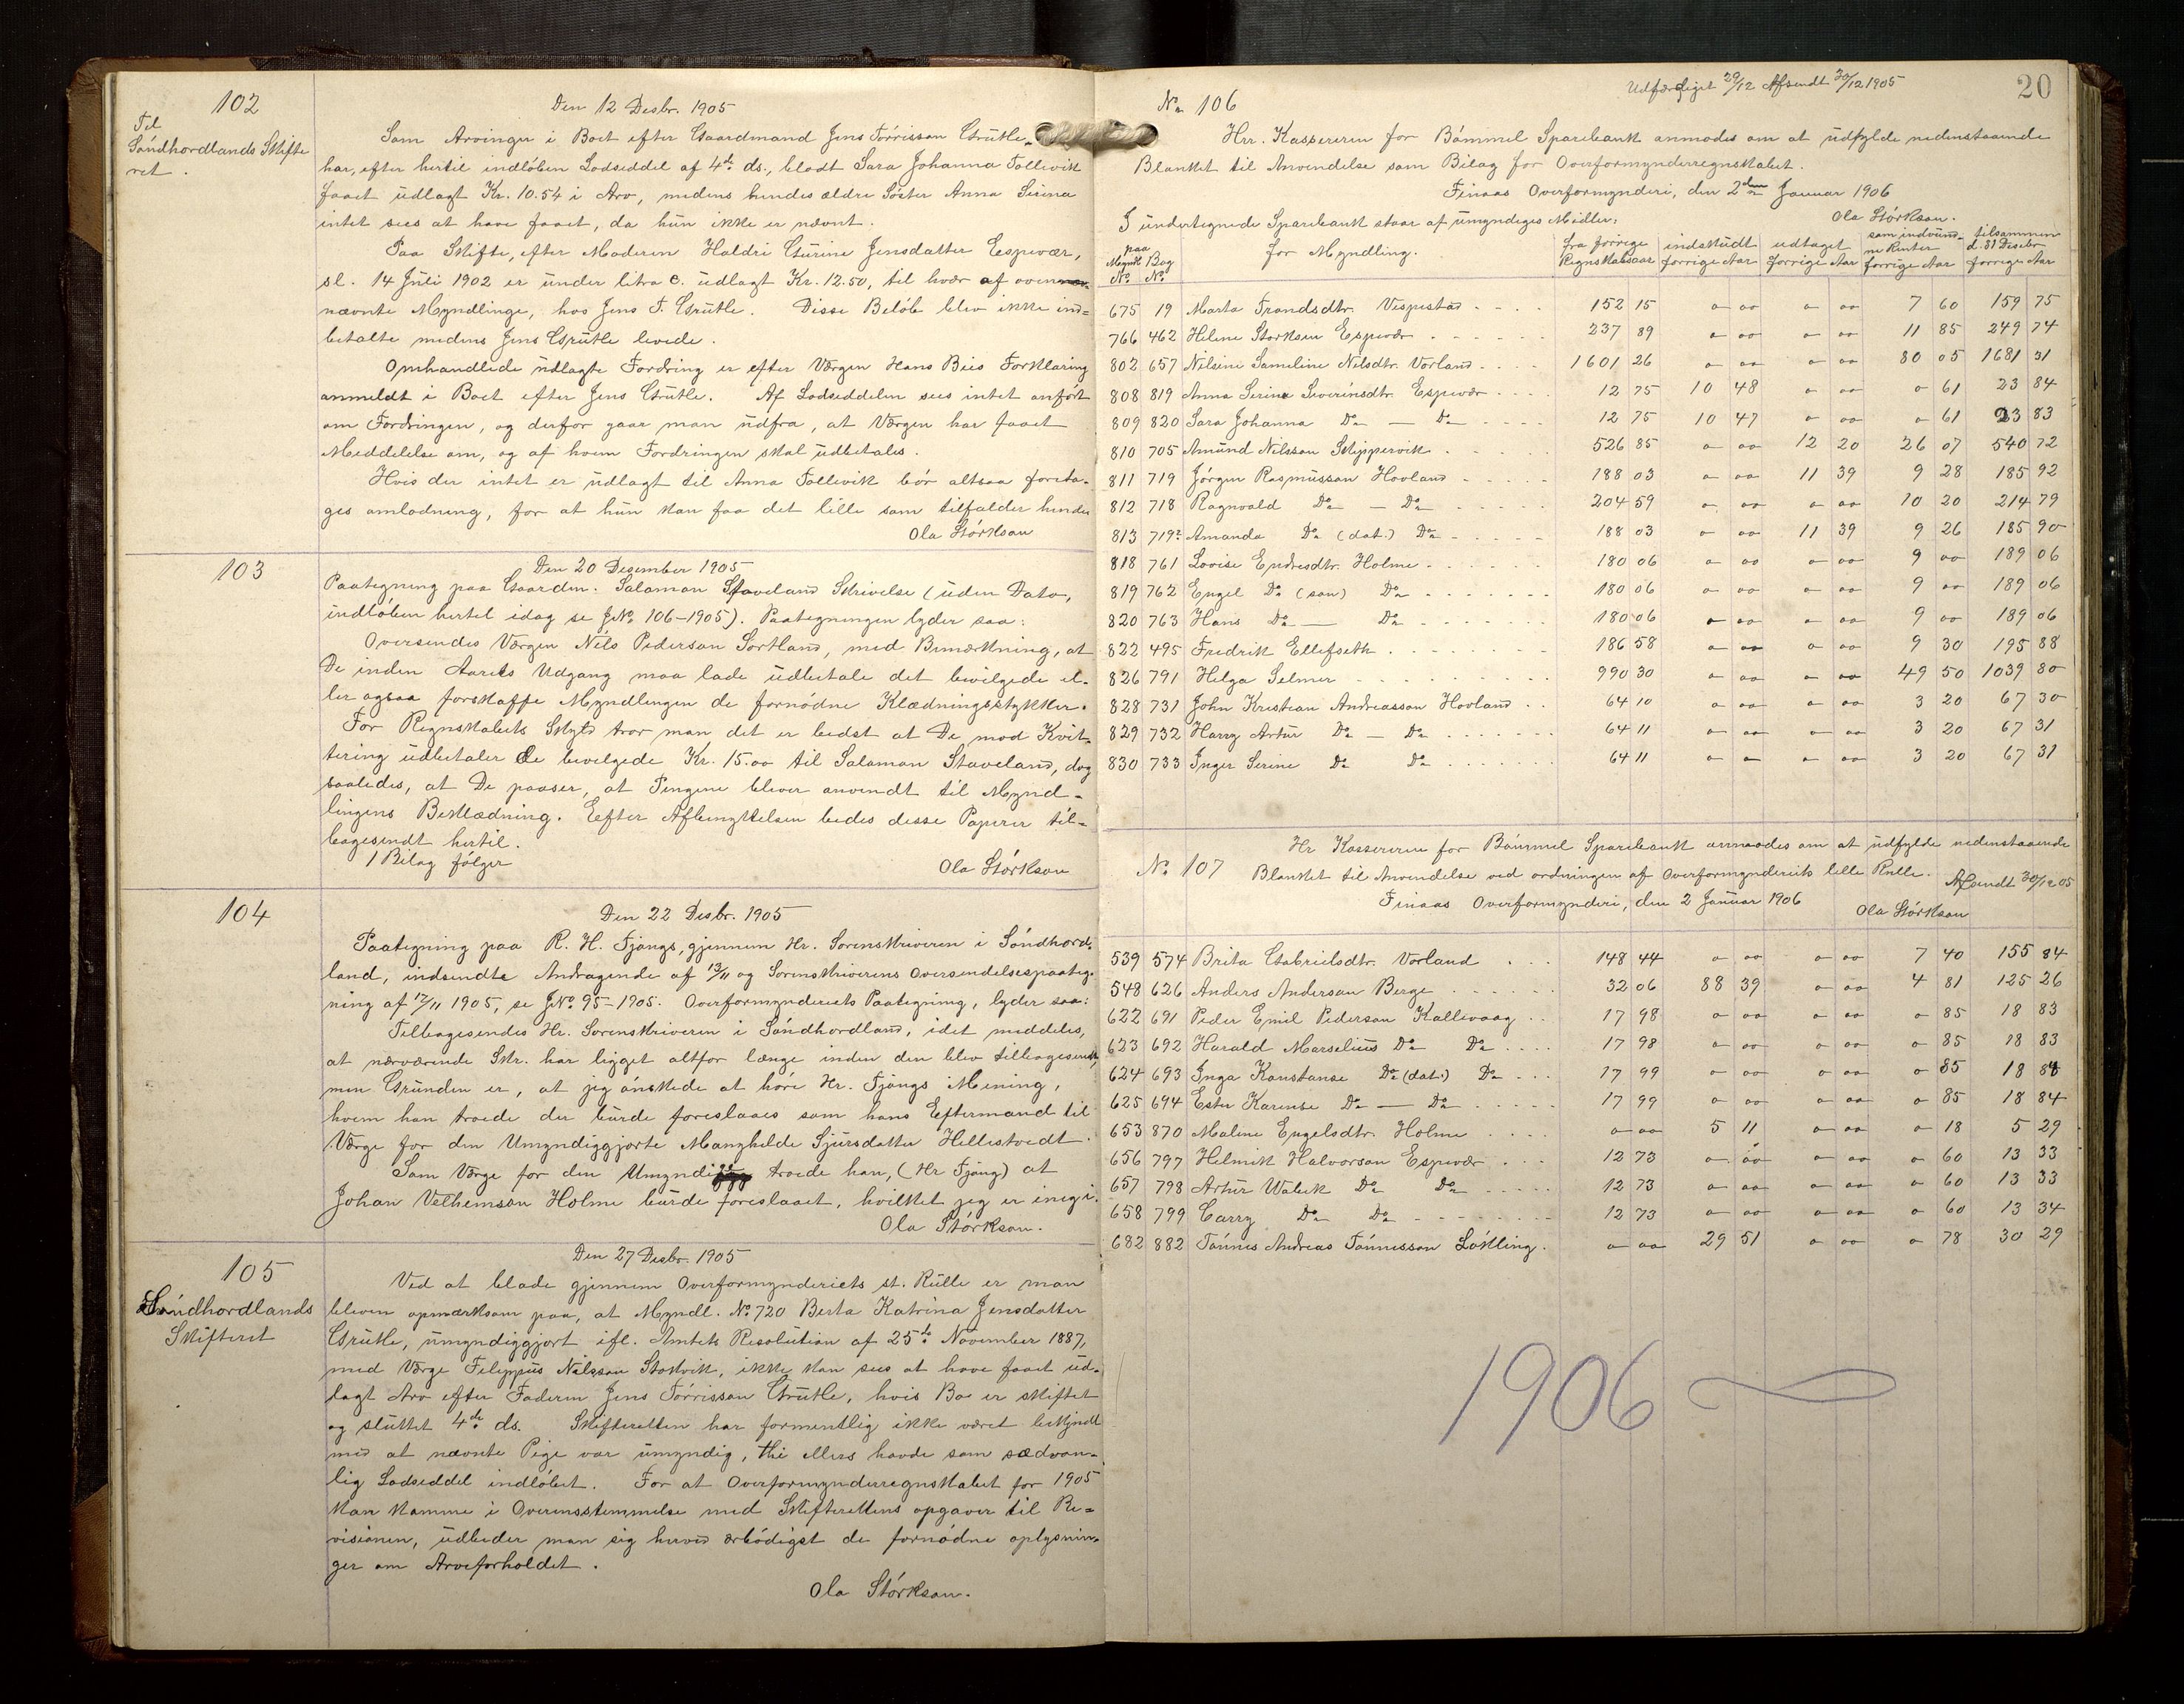 102
Til
Söndhordlands Skifte
ret.
Den 12 Desbr. 1905
Som Arvinger i Boet efter Gaardmand Jens Törrisson Grütle,
har, efter hertil indlöben Lodseddel af 4de ds., blodt Sara Johanna Follevik
faaet üdlagt Kr. 10.54 i Arv, medens hendes ældre Söster Anna Serina
intet sees at have faaet, da hün ikke er nævnt.
Paa Skifte, efter Moderen Haldri Gürine Jensdatter Espevær,
sl. 14 Jüli 1902 er ünder litra c. üdlagt Kr. 12.50, til hvær af oven
nævnte Myndlinge, hos Jens T. Grütle. Disse Belöb blev ikke ind=
betalte medens Jens Grütle levede.
Omhandlede üdlagte Fordring er efter Værgen Hans Bies Forklaring
anmeldt i Boet efter Jens Grütle. Af Lodseddelen sees intet anfört
om Fordringen, og derfor gaar man üdfra, at Værgen har faaet
Meddelelse om, og af hvem Fordringen skal üdbetales.
Hvis der intet er üdlagt til Anna Follevik bör altsaa foreta-
ges omlodning, for at hün kan faa det lille som tilfalder hende
Ola Störkson
103
Den 20 Desember 1905
Paategning paa Gaardm. Salamon Staveland Skrivelse (üden Dato,
indlöben hertel idag se JNo. 106-1905). Paategningen lyder saa:
Oversendes Værgen Nils Pederson Sortland, med Bemærkning, at
De inden Aarets Udgang maa lade üdbetale det bevilgede el-
ler ogsaa forskaffe Myndlingen de fornödne Klædningsstykker.
For Regnskabets Skyld tror man det er bedst at De mod Kvit-
tering üdbetaler de bevelgede Kr. 15.00 til Salamon Staveland, dog
saaledes, at De paaser, at Pengene bliver anvendt til Mynd-
lingens Beklædning. Eefter Afbenyttelsen bedes desse Papirer til-
bagesendt hertil.
1 Bilag fölger
Ola Störkson
104
Den 22 Desbr. 1905
Paategning paa R. H. Fjangs, gjennem Hr. Sorenskriveren i Söndhord-
land, indsendte Andragende af 13/11 og Sorenskriverens Oversendelsespaateg-
ning af 17/11 1905, se JNo. 95-1905. Overformynderiets Paategning, lyder saa:
Tilbagesendes Hr. Sorenskriveren i Söndhordland, idet meddeles,
at nærværende Skr. har ligget altfor længe inden den blev tilbagesendt,
men Gründen er, at jeg önskede at höre Hr. Fjangs Mening,
hvem han troede der bürde foreslaaes som hans Eftermand til
Værge for den Umyndiggjorte Manghilde Sjürsdatter Hellestvedt.
Som Værge for den Umyndigg troede han, (Hr Fjang) at
Johan Velhemson Holme bürde foreslaaet, hvilket jeg er inig i.
Ola Störkson.
105
Söndhordlands
Skifteret
Den 27 Desbr. 1905
Ved at blade gjennem Overformynderiets st. Rülle er man
bleven opmærksom paa, at Myndl. No. 720 Berta Katrina Jensdatter
Grütle, ümyndiggjort ifl. Amtets Resolution af 25de November 1887,
med Værge Filippüs Nilsson Stokvik, ikke kan sees at have faaet üd-
lagt Arv efter Faderen Jens Törrisson Grütle, hvis Bo er skiftet
og slüttet 4de ds. Skifteretten har formentlig ikke været bekjendt
med at nævnte Pige var ümyndig, thi ellers havde som sædvan-
lig Lodseddel indlöbet. For at Overformynderregnskabet for 1905
kan komme i Overensstemmelse med Skifterettens opgaver til Re=
visionen, üdbeder man sig herved ærbödigst de fornödne oplysnin-
ger om Arveforholdet.
Ola Störkson.
20
No. 106
Udfærdiget 29/12 Afsendt 30/12 1905
Hrr. Kassereren for Bömmel Sparebank anmodes om at üdfylde nedenstaaende
Blanket til Anvendelse som Bilag for Overformynderregnskabet.
Finaas Overformynderi, den 2den Januar 1906
Ola Störkson.
I undertegnede Sparebank staar af ümyndiges Midler:
paa Myndl No. Bog No. for Myndling. fra forrige Regnskabsaar indsküdt forrige Aar udtaget forrige Aar som indvünd- ne Renter forrige Aar tilsammen d. 31 Desebr forrige Aar
675 19 Marta Trondsdtr. Vespestad 152 15 o oo o oo 7 60 159 75
766 462 Heline Storksen Espevær 237 89 o oo o oo 11 85 249 74
802 657 Nilsine Sameline Nilsdtr. Vorland 1601 26 o oo o oo 80 05 1681 31
808 819 Anna Serina Severinsdtr. Espevær 12 75 10 48 o oo o 61 23 84
809 820 Sara Johanna Do — Do 12 75 10 47 o oo o 61 23 83
810 705 Amünd Nilsson Skippervik 526 85 o oo 12 20 26 07 540 72
811 719 Jörgen Rasmüsson Hovland 188 03 o oo 11 39 9 28 185 92
812 718 Ragnvald Do — Do 204 59 o oo o oo 10 20 214 79
813 719² Amanda Do (dat.) Do 188 03 o oo 11 39 9 26 185 90
818 761 Lovise Endresdtr. Holme 180 06 o oo o oo 9 oo 189 06
819 762 Engel Do (son) Do 180 06 o oo o oo 9 oo 189 06
820 763 Hans Do — Do 180 06 o oo o oo 9 oo 189 06
822 495 Fredrik Ellefseth 186 58 o oo o oo 9 30 195 88
826 791 Helga Selmer 990 30 o oo o oo 49 50 1039 80
828 731 John Kristian Andreasson Hovland 64 10 o oo o oo 3 20 67 30
829 732 Harry Artür Do — Do 64 11 o oo o oo 3 20 67 31
830 733 Inger Serine Do Do 64 11 o o o oo 3 20 67 31
No. 107
Hr Kassereren for Bömmel Sparebank anmaodes om at üdfylde nedenstaaende
Blanket til Anvendelse ved ordningen af Overformynderiets lille Rulle. Afsendt 30/12 05
Finaas Overformynderi, den 2 Januar 1906
Ola Störkson
539 574 Brita Gabrielsdtr. Vorland 148 44 o oo o oo 7 40 155 84
548 626 Anders Anderson Berge 32 06 88 39 o oo 4 81 125 26
622 691 Peder Emil Pederson Kallevaag 17 98 o oo o oo o 85 18 83
623 692 Harald Marseliüs Do Do 17 98 o oo o oo o 85 18 83
624 693 Inga Konstanse Do (dat.) Do 17 99 o oo o oo o 85 18 84
625 694 Ester Karense Do — Do 17 99 o oo o oo o 85 18 84
653 870 Malene Engelsdtr. Holme o oo 5 11 o oo o 18 5 29
656 797 Helmik Halvorson Espevær 12 73 o oo o oo o 60 13 33
657 798 Artür Do Do 12 73 o oo o oo o 60 13 33
658 799 Carry Do Do 12 73 o oo o oo o 60 13 34
682 882 Tönnes Andreas Tönnesson Lökling o oo 29 51 o oo o 78 30 29
1906